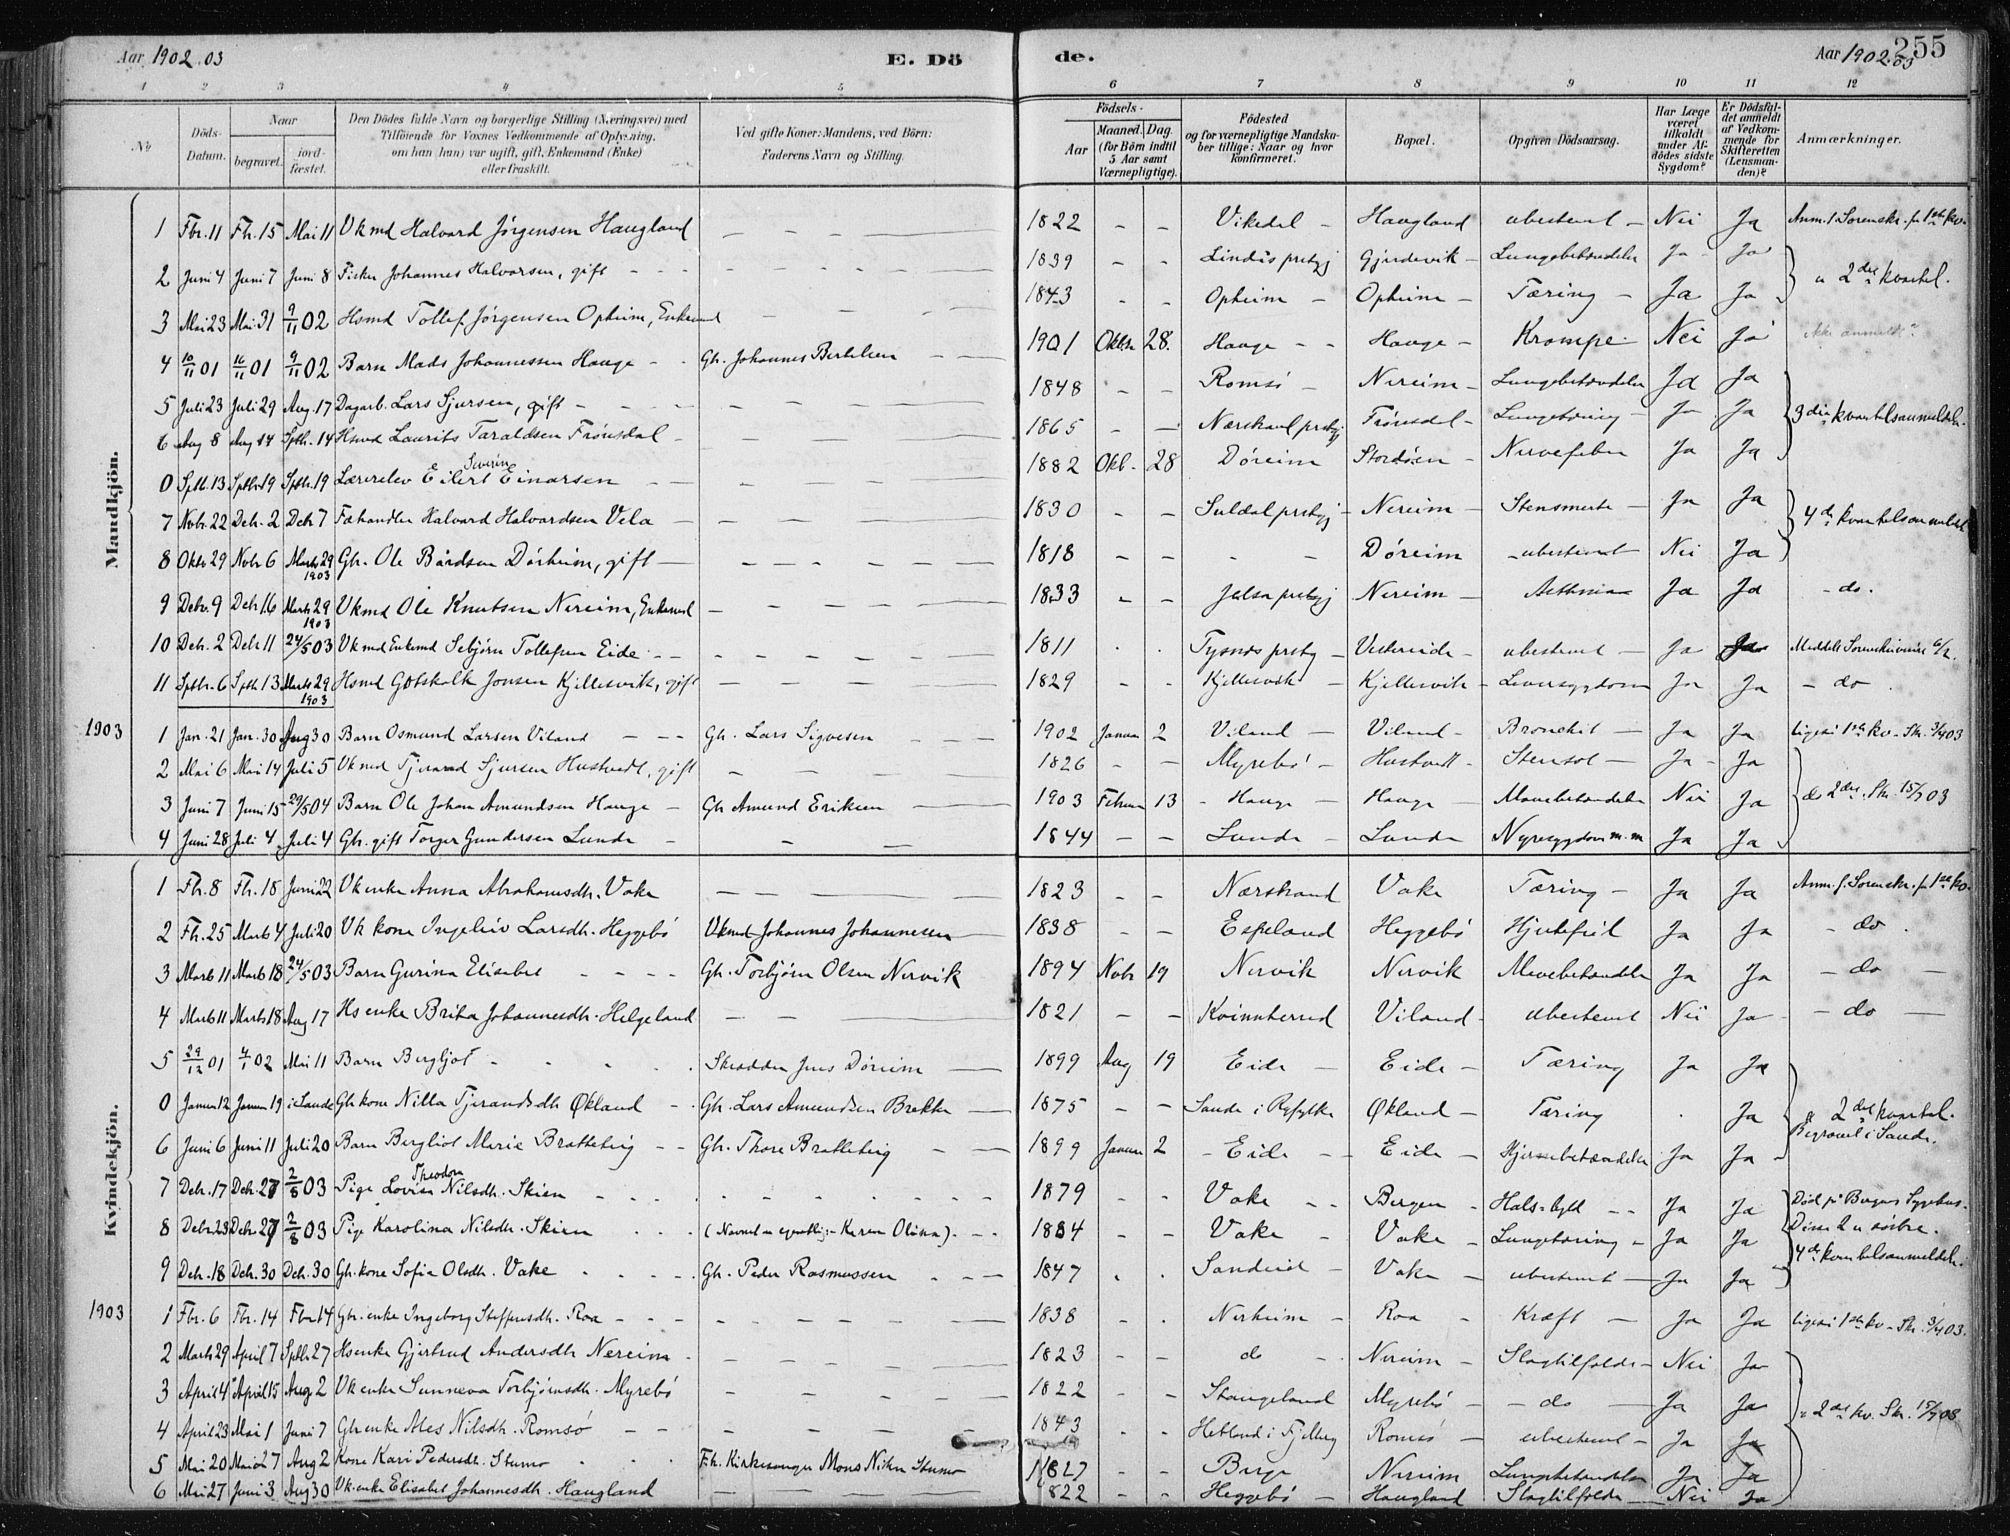 Aar 1902.03 E. Dö de. Aar 1902.03 255
1 2 3 4 5 6 7 8 9 10 11 12
No Döds-Datum. Naar begravet. jordfæstet. Den Dödes fulde Navn og borgerlige Stilling (Næringsvei) med Tilföiende for Voxnes Vedkommende af Oplysning, om han (hun) var ugift, gift, Enkemand (Enke) eller fraskilt. Ved gifte Koner: Mandens, ved Börn: Faderens Navn og Stilling. Födsels- Aar Maaned. Dag. (for Börn indtil 5 Aar samt Værnepligtige). Födested og for værnepligtige Mandskaber tillige: Naar og hvor konfirmeret. Bopæl. Opgiven Dödsaarsag. Har Læge været tilkaldt under Afdødes sidste Sygdom? Er Dödsfaldet anmeldt af Vedkommende for Skifteretten (Lensmanden)? Anmærkninger.
Mandkjön.
1 Fbr. 11 Fb. 15 Mai 11 Vkmd Halvard Jørgensen Haugland 1822 Vikedal Haugland ubestemt Nei Ja Anm. t. Sorenskr. p 1ste kv.
2 Juni 4 Juni 7 Juni 8 Fisker Johannes Halvorsen, gift 1839 Lindås prstgj Gjerdevik Lungebetændelse Ja Ja
3 Mai 23 Mai 31 9/11 02 Hsmd Tollef Jørgensen Opheim, Enkemd 1843 Opheim Opheim Tæring Ja Ja " 2det kvartal.
4 10/11 01 16/11 01 9/11 02 Barn Mads Johannessen Hauge Gb. Johannes Bertelsen 1901 Oktbr 28. Hauge Hauge Krampe Nei Ja ikke anmeldt?
5 Juli 23 Juli 29 Aug. 17 Dagarb. Lars Sjursen, gift 1848 Romsö Nereim Lungebetændelse Ja Ja
6 Aug 8 Aug 14 Sptb. 14 Hsmd Laurits Taraldsen Frönsdal 1865 Nærstrand prstgj Frönsdal Lungetæring Ja Ja 3die kvartalsanmeldelse
0 Sptb. 13 Sptb. 19 Sptb. 19 Lærerelev Eilert Severin Einarsen 1882 Okt. 28 Döreim Stordöen Nervefeber Ja Ja
7 Nvbr. 22 Dcbr. 2 Dcbr 7 Fæhandler Halvard Halvardsen Vela 1830 Suldal prstgj Nereim Stensmerte Ja Ja 4de kvartalsanmeldel
8 Oktbr 29 Nvbr 6 Marts 29 1903 Gbr. Ole Bårdsen Dörheim, gift 1818 Döreim ubestemt Nei Ja
9 Dcbr. 9 Dcbr 16 Marts 29 1903 Vkmd Ole Knutsen Nereim, Enkemd 1833 Jelsa prstgj Nereim Asthma Ja Ja do.
10 Dcbr. 2 Dcbr 11 24/5 03 Vkmd Enkemd Sebjörn Tollefsen Eide 1811 Tysnes prstgj Vestereide ubestemt Ja Ja Meddelt Sorenskriveren 6/2.
11 Sptbr. 6 Sptb 13 Marts 29 1903 Hsmd Gotskalk Jonsen Kjellesvik, gift 1829 Kjellesvik Kjellesvik Leversygdom Ja Ja do.
1903 1 Jan. 21 Jan. 30 Aug 30 Barn Osmund Larsen Viland Gb. Lars Sigvesen 1902 Januar 2 Viland Viland Bronchit Ja Ja ligesi 1ste kv. Skr. 3/4 03
2 Mai 6 Mai 14 Juli 5 Vkmd Tjerand Sjursen Hustvedt, gift 1826 Myrebö Hustvedt Stensot Ja Ja
3 Juni 7 Juni 15 29/5 04 Barn Ole Johan Amundsen Hauge Gb Amund Eriksen 1903 Februar 13 Hauge Hauge Mavebetændelse Nei Ja do 2det. Skr. 15/7 03
4 Juni 28 Juli 4 Juli 4 Gbr. gift Torger Gundersen Lunde 1844 Lunde Lunde Nyresygdom m.m Ja Ja
Kvindekjön.
1 Fb. 8 Fb. 18 Juni 22 Vkenke Anna Abrahamsdtr. Vake 1823 Nærstrand Vake Tæring Ja Ja Anm. f. Sorenskr. p 1ste kv.
2 Fb. 25 Marts 4 Juli 20 Vkkone Ingeleiv Larsdtr. Heggebö Vkmd Johannes Johannessen 1838 Espeland Heggebö Hjertefeil Ja Ja do.
3 Marts 11 Marts 18 24/5 03 Barn Gurina Elisabet Gb. Torbjörn Olsen Nervik 1894 Nvbr 19 Nervik Nervik Mavebetændelse Ja Ja do
4 Marts 11 Marts 18 Aug 17 Hsenke Brita Johannesdtr. Helgeland 1821 Kvinnherred Viland ubestemt Nei Ja do
5 29/12 01 4/1 02 Mai 11 Barn Bergljot Skrædder Jens Döreim 1899 Aug 19 Eide Eide Tæring Ja Ja
0 Januar 12 Januar 19 i Sande Gbkone Nilla Tjerandsdtr Økland Gb. Lars Amundsen Brekke 1875 Sande i Ryfylke Økland Tæring Ja " 2det kvartal. Begravet i Sande.
6 Juni 6 Juni 11 Juli 20 Barn Bergliot Marie Bratteteig Gb. Thore Bratteteig 1899 Januar 2 Eide Eide Hjernebetændelse Ja Ja
7 Dcbr. 17 Dcbr. 27 2/8 03 Pige Lovisa Theodora Nilsdtr. Skien 1879 Vake Bergen Hals-byld Ja Ja Död på Bergens Sygehus.
8 Dcbr. 23 Dcbr. 27 2/8 03 Pige Karolina Nilsdtr. Skien (Navnet er egentlig:- Karen Olina). 1884 Vake Vake Lungetæring Ja Ja Disse 2 er söstre.
9 Dcbr. 18 Dcbr. 30 Dcbr. 30 Gbkone Sofia Olsdtr. Vake Gb. Peder Rasmussen 1847 Sandeid Vake ubestemt Ja Ja 4de kvartalsanmeldel.
1903 1 Fbr. 6 Fbr. 14 Fbr 14 Gbr. enke Ingeborg Steffensdtr. Roa 1838 Nerheim Roa Kræft Ja Ja ligesi 1ste kv. Skr. 3/4 03.
2 Marts 29 April 7 Sptbr 27 Hsenke Gjertrud Andersdtr Nereim 1823 do Nereim Slagtilfælde Nei Ja
3 April 4 April 15 Aug 2 Vkenke Sunneva Torbjörnsdtr. Myrebö 1822 Stangeland Myrebö do Ja Ja
4 April 23 Mai 1 Juni 7 Gbenke Ales Nilsdtr. Romsö 1843 Hetland i Fjelberg Romsö ubestemt Ja Ja " 2det kv. Skr. 15/7 03
5 Mai 20 Mai 27 Aug 2 Kone Kari Pedersdtr. Stumo Fh. Kirkesanger Mons Nilsen Stumo 1827 Berge Nereim Lungebetændelse Ja Ja
6 Mai 27 Juni 3 Aug 30 Vk. enke Elisabet Johannesdtr. Haugland 1822 Heggebö Haugland Slagtilfælde Nei Ja